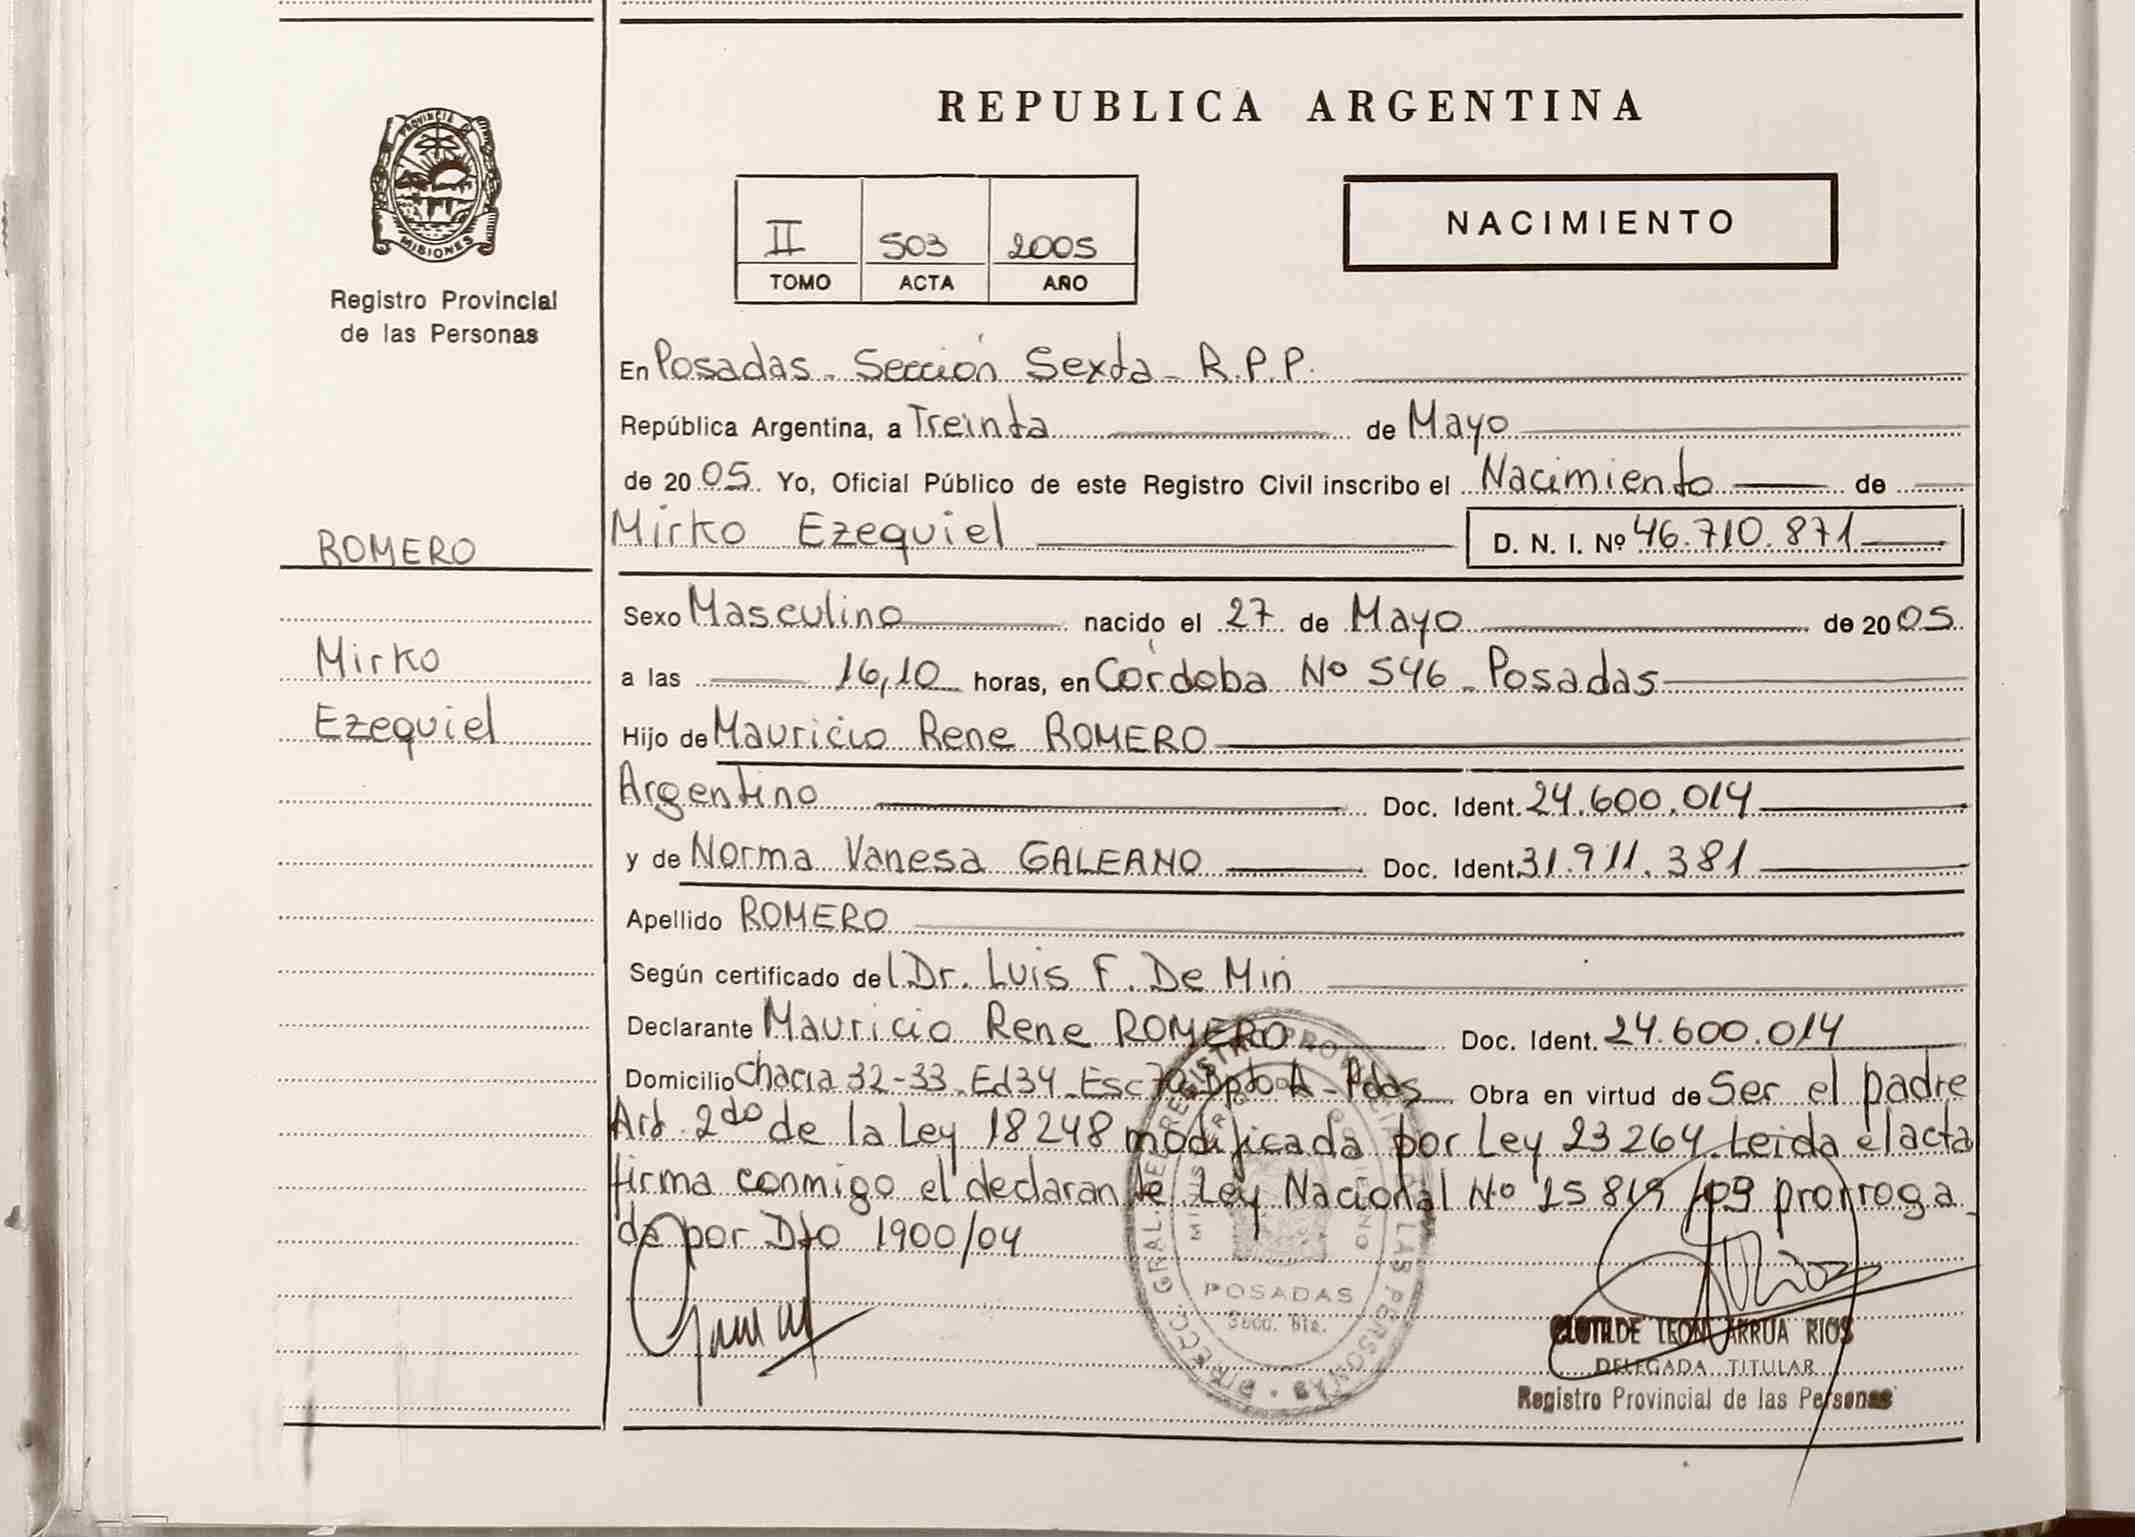 REPUBLICA ARGENTINA
PROVINCIA DE
MISIONES
Registro Provincial
de las Personas
II 503 2005
TOMO ACTA AÑO
NACIMIENTO
En Posadas - Sección Sexta - R.P.P.
República Argentina, a Treinta de Mayo
de 2005. Yo, Oficial Público de este Registro Civil inscribo el Nacimiento de
ROMERO
Mirko
Ezequiel
Mirko Ezequiel D. N. I. Nº 46.710.871
Sexo Masculino nacido el 27 de Mayo de 2005
a las 16,10 horas, en Córdoba Nº 546 - Posadas
Hijo de Mauricio Rene ROMERO
Argentino Doc. Ident. 24.600.014
y de Norma Vanesa GALEANO Doc. Ident. 31.911.381
Apellido ROMERO
Según certificado del Dr. Luis F. De Min
Declarante Mauricio Rene ROMERO Doc. Ident. 24.600.014
Domicilio Chacra 32-33 - Ed 34 - Esc Dpto A - Pdas Obra en virtud de Ser el padre
Art. 2do de la Ley 18248 modificada por Ley 23264. Leida el acta
firma conmigo el declarante. Ley Nacional Nº 25819/03 prorroga
da por Dto 1900/04
DIRECC. GRAL. DEL REGISTRO PROVINCIAL DE LAS PERSONAS
POSADAS
Secc. 6ta.
CLOTILDE LEON ARRUA RIOS
DELEGADA TITULAR
Registro Provincial de las Personas